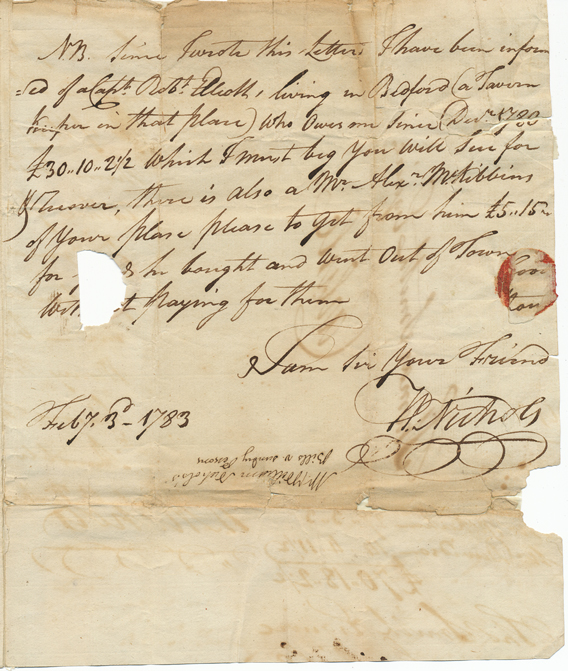 NB. Since I wrote this Letter I have been inform
=ed of a Capt. Robt. Elliott, living in Bedford (a Tavern
keeper in that place) who owes me since Decr. 1780
£30..10..2½ which I must beg you will Sue for
& recover, there is also a Mr. Alexr. McKibbins
of your place please to get from him £5..15
for he bought and went out of Town
without paying for them
I am Sir Your Friend
W. Nichols
Feby. 3d - 1783
Mr. William Nichols's
Bills v. sundry Persons